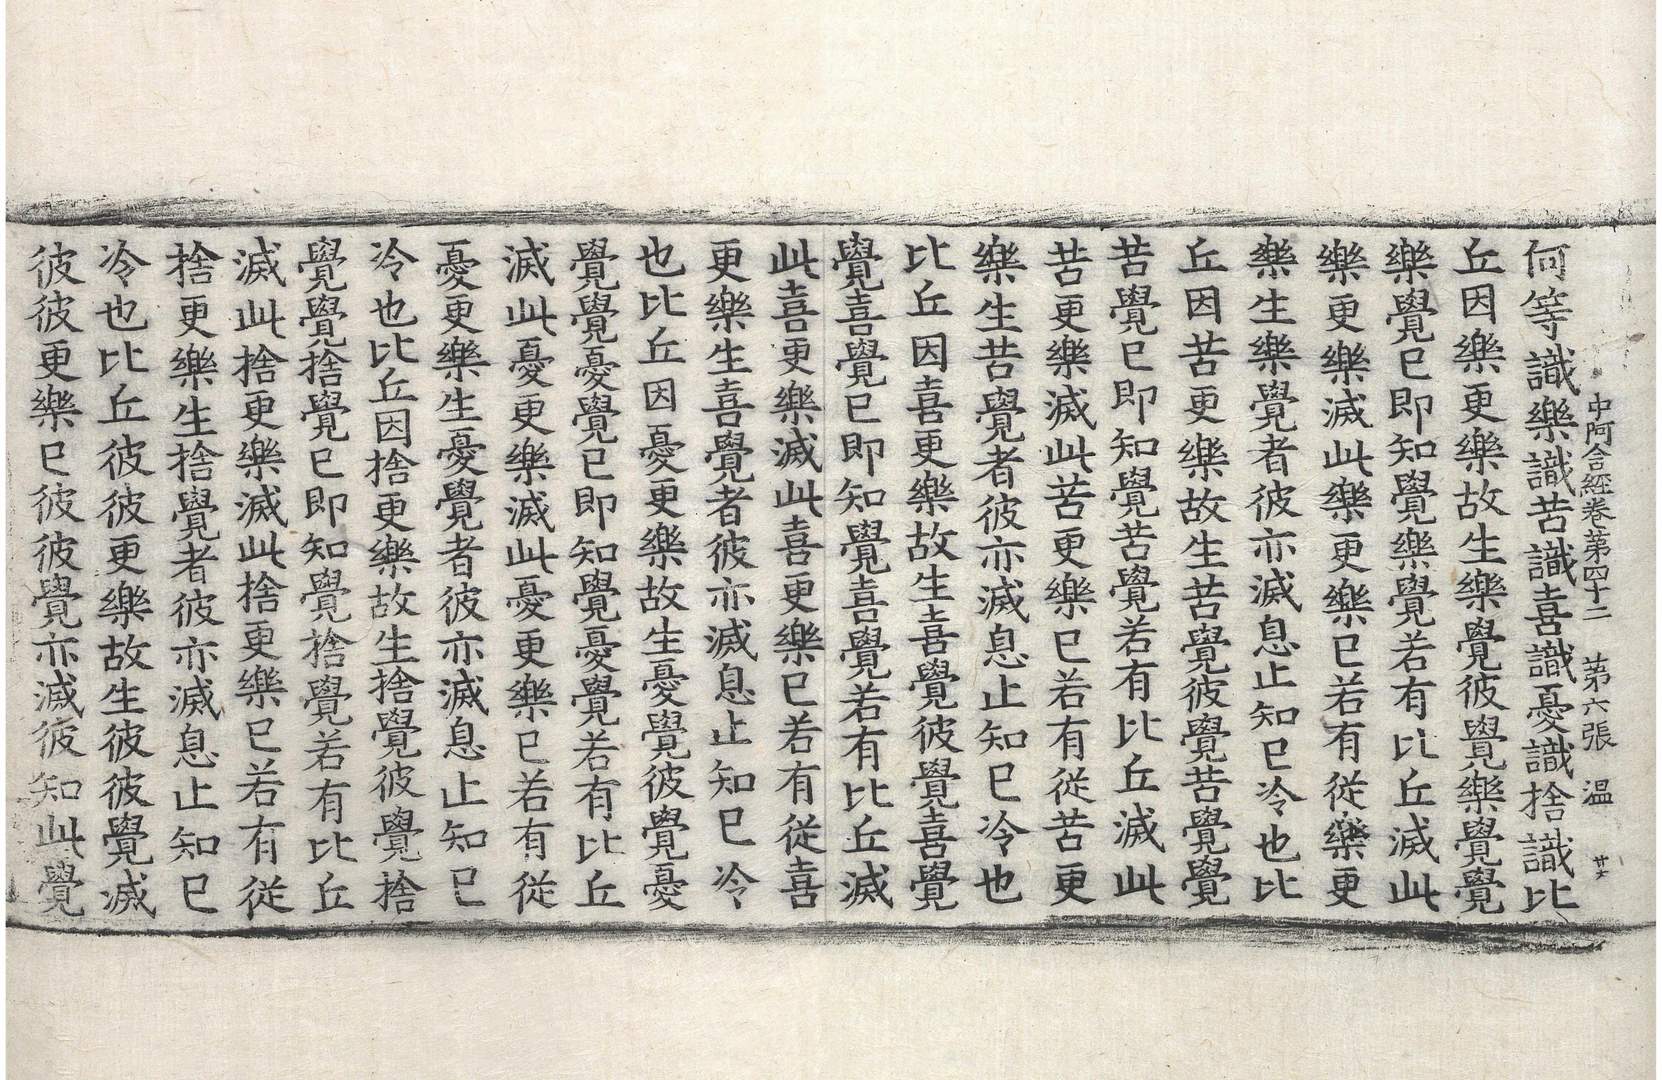 中阿含經卷第四十二 第六張 温
何等識樂識苦識喜識憂識捨識比
丘因樂更樂故生樂覺彼覺樂覺覺
樂覺已即知覺樂覺若有比丘滅此
樂更樂滅此樂更樂已若有從樂更
樂生樂覺者彼亦滅息止知已冷也比
丘因苦更樂故生苦覺彼覺苦覺覺
苦覺已即知覺苦覺若有比丘滅此
苦更樂滅此苦更樂已若有從苦更
樂生苦覺者彼亦滅息止知已冷也
比丘因喜更樂故生喜覺彼覺喜覺
覺喜覺已即知覺喜覺若有比丘滅
此喜更樂滅此喜更樂已若有從喜
更樂生喜覺者彼亦滅息止知已冷
也比丘因憂更樂故生憂覺彼覺憂
覺覺憂覺已即知覺憂覺若有比丘
滅此憂更樂滅此憂更樂已若有從
憂更樂生憂覺者彼亦滅息止知已
冷也比丘因捨更樂故生捨覺彼覺捨
覺覺捨覺已即知覺捨覺若有比丘
滅此捨更樂滅此捨更樂已若有從
捨更樂生捨覺者彼亦滅息止知已
冷也比丘彼彼更樂故生彼彼覺滅
彼彼更樂已彼彼覺亦滅彼知此覺